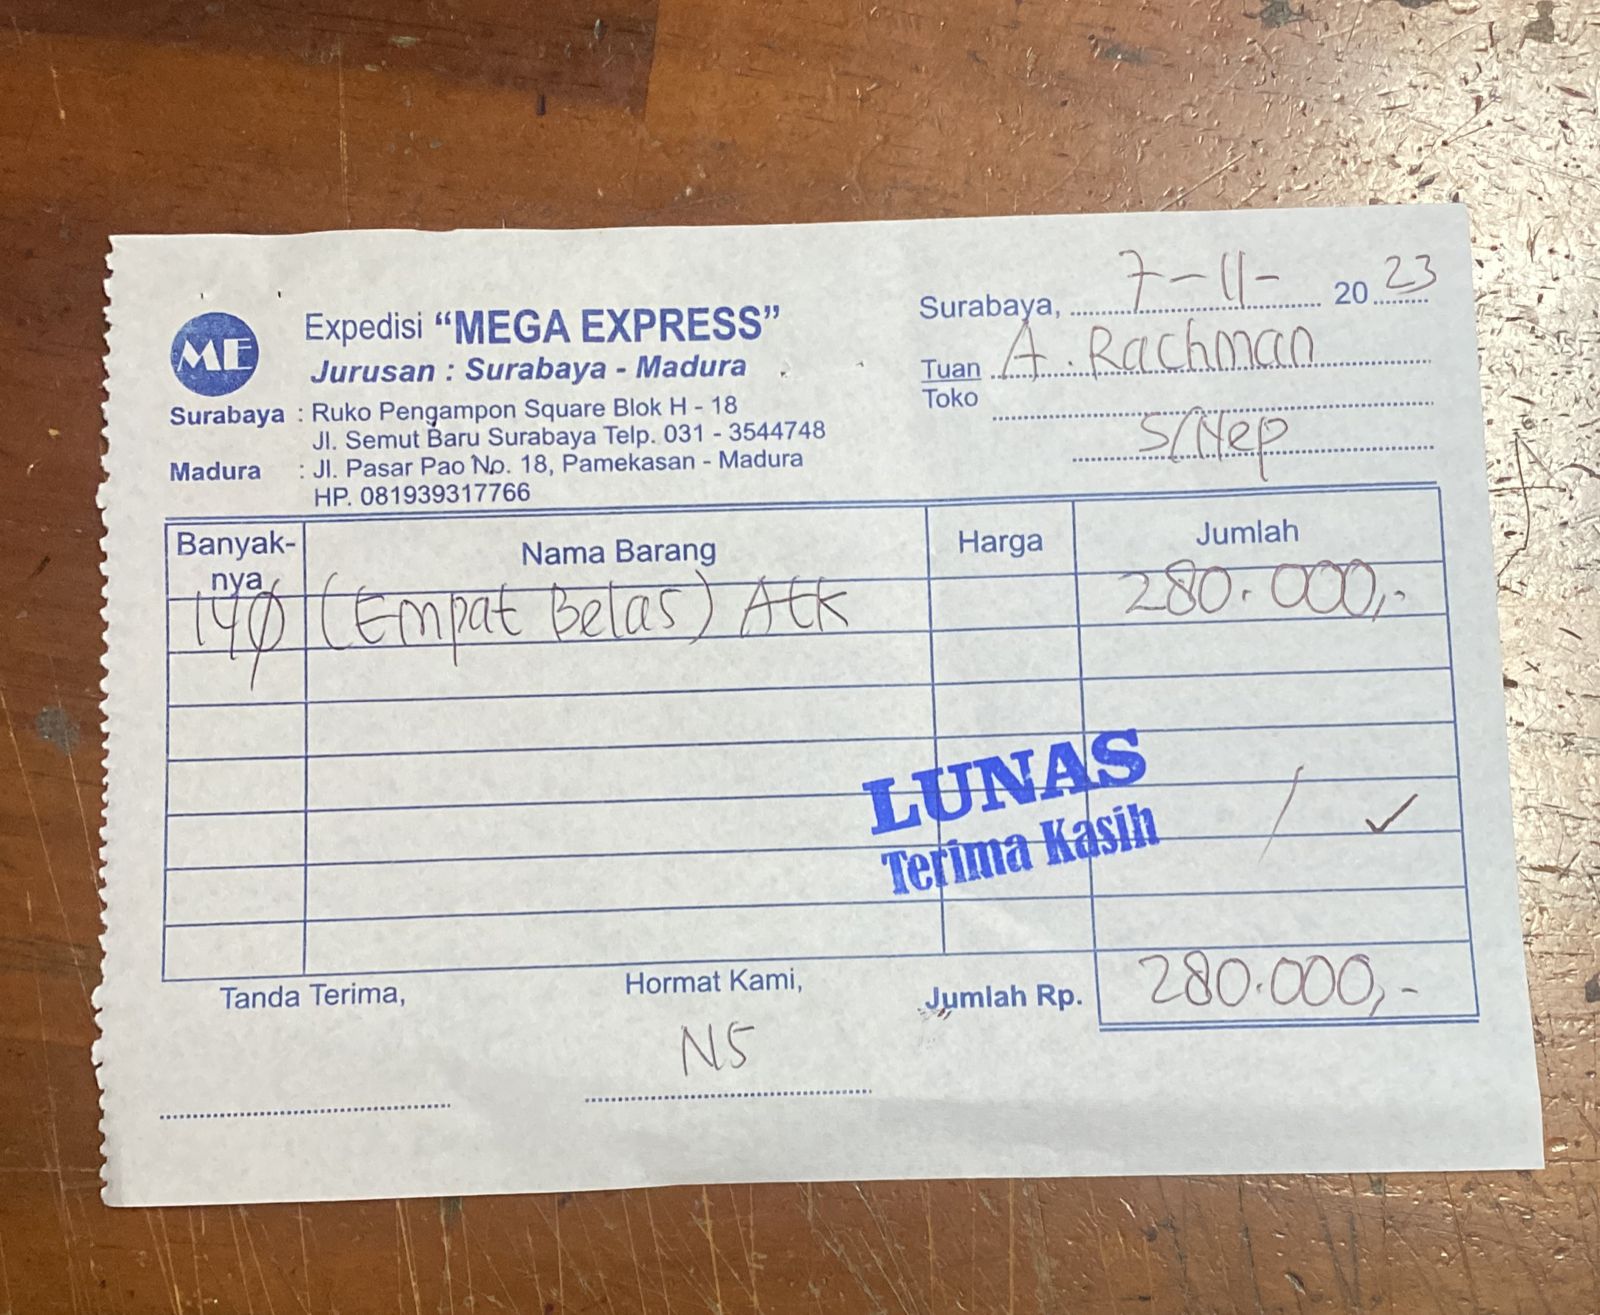 ME
Expedisi “MEGA EXPRESS”
Jurusan : Surabaya - Madura
Surabaya : Ruko Pengampon Square Blok H - 18
Jl. Semut Baru Surabaya Telp. 031 - 3544748
Madura : Jl. Pasar Pao No. 18, Pamekasan - Madura
HP. 081939317766
Surabaya, 7 - 11 - 2023
Tuan A. Rachman
Toko
Banyak-
nya
Nama Barang
Harga
Jumlah
(Empat Belas) 280.000,-
LUNAS
Terima Kasih
Tanda Terima,
Hormat Kami,
Jumlah Rp. 280.000,-